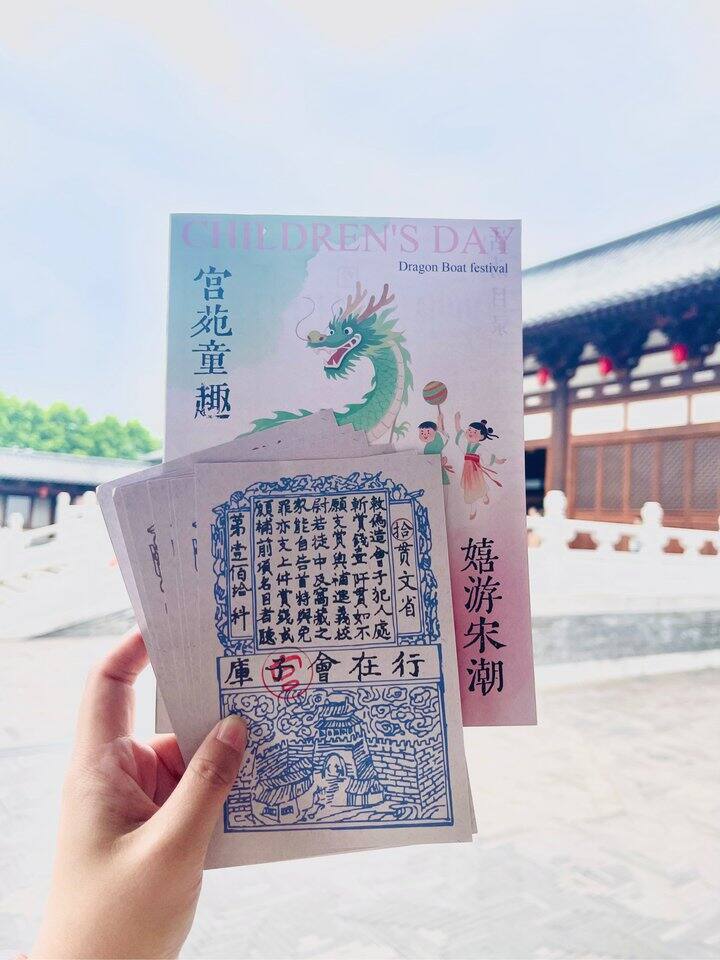 CHILDREN'S DAY
Dragon Boat festival
宫苑童趣
嬉游宋潮
拾贯文省
敕偽造會子犯人處
斬賞錢壹阡貫如不
願支賞與補進義校
尉若徒中及窩藏之
家能自告首特與免
罪亦支上件賞錢或
願補前項名目者聽
第壹佰拾料
行在會子庫